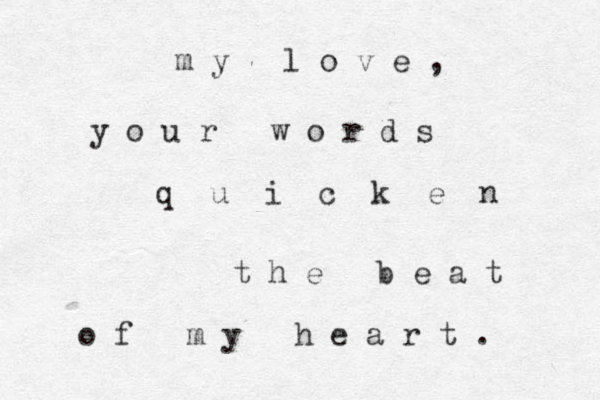 my love,
your words
quicken
the beat
of my heart.